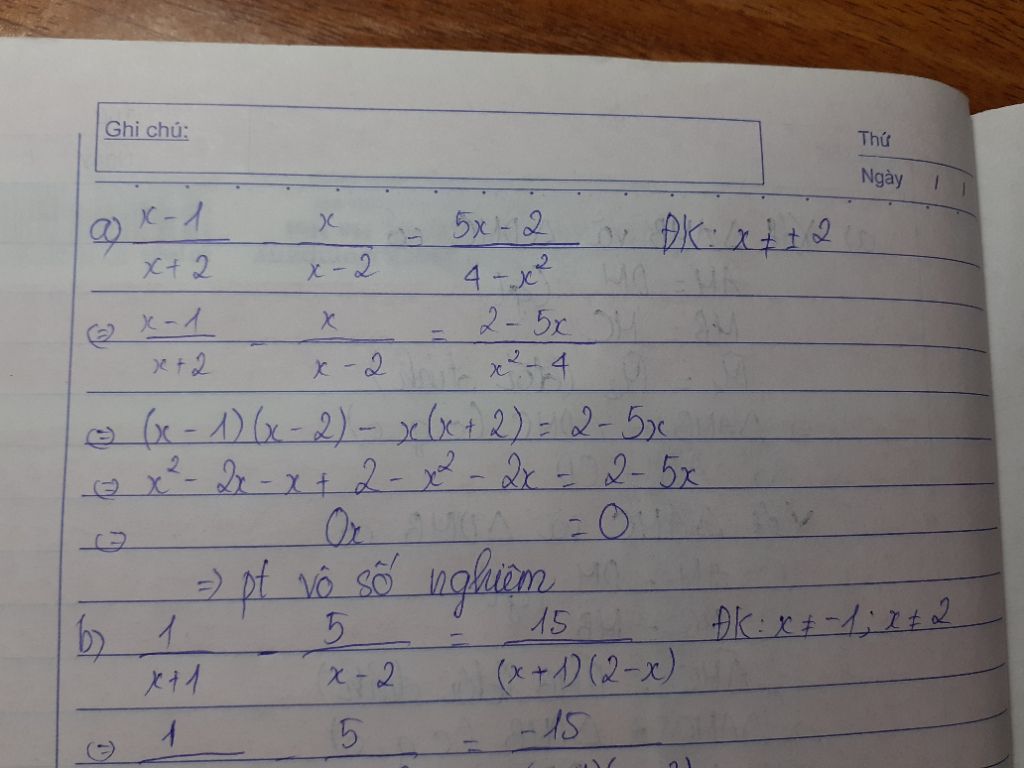 Ghi chú:
Thứ
Ngày / /
a) x-1/x+2 - x/x-2 = 5x-2/4-x² ĐK: x ≠ ±2
(=) x-1/x+2 - x/x-2 = 2-5x/x²-4
(=) (x-1)(x-2) - x(x+2) = 2-5x
(=) x² - 2x - x + 2 - x² - 2x = 2-5x
(=) 0x = 0
=> pt vô số nghiệm
b) 1/x+1 - 5/x-2 = 15/(x+1)(2-x) ĐK: x ≠ -1; x ≠ 2
(=) 1 5 = -15